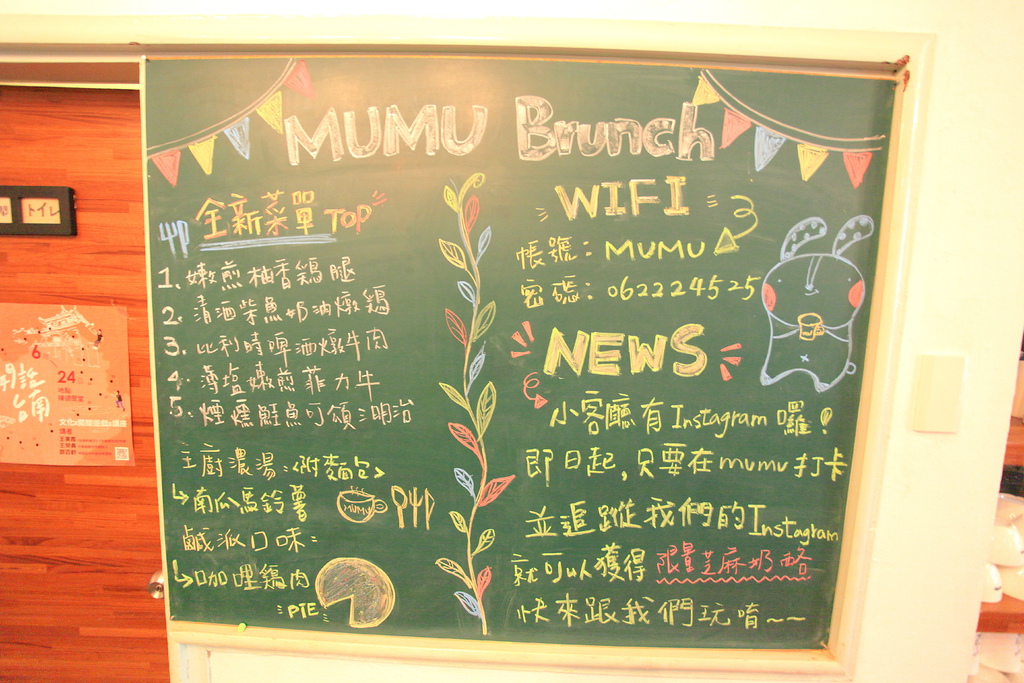 MUMU Brunch
全新菜單 TOP
1. 嫩煎柚香鷄腿
2. 清酒柴魚奶油燉鷄
3. 比利時啤酒燉牛肉
4. 薄塩嫩煎菲力牛
5. 煙燻鮭魚可頌三明治
主廚濃湯:<附麵包>
↳南瓜馬鈴薯
MUMU
鹹派口味:
↳咖哩鷄肉
PIE
WIFI
帳號: MUMU
密碼: 062224525
NEWS
小客廳有Instagram囉!
即日起,只要在mumu打卡
並追蹤我們的Instagram
就可以獲得 限量芝麻奶酪
快來跟我們玩唷~~
トイレ
6
24
地點
台南